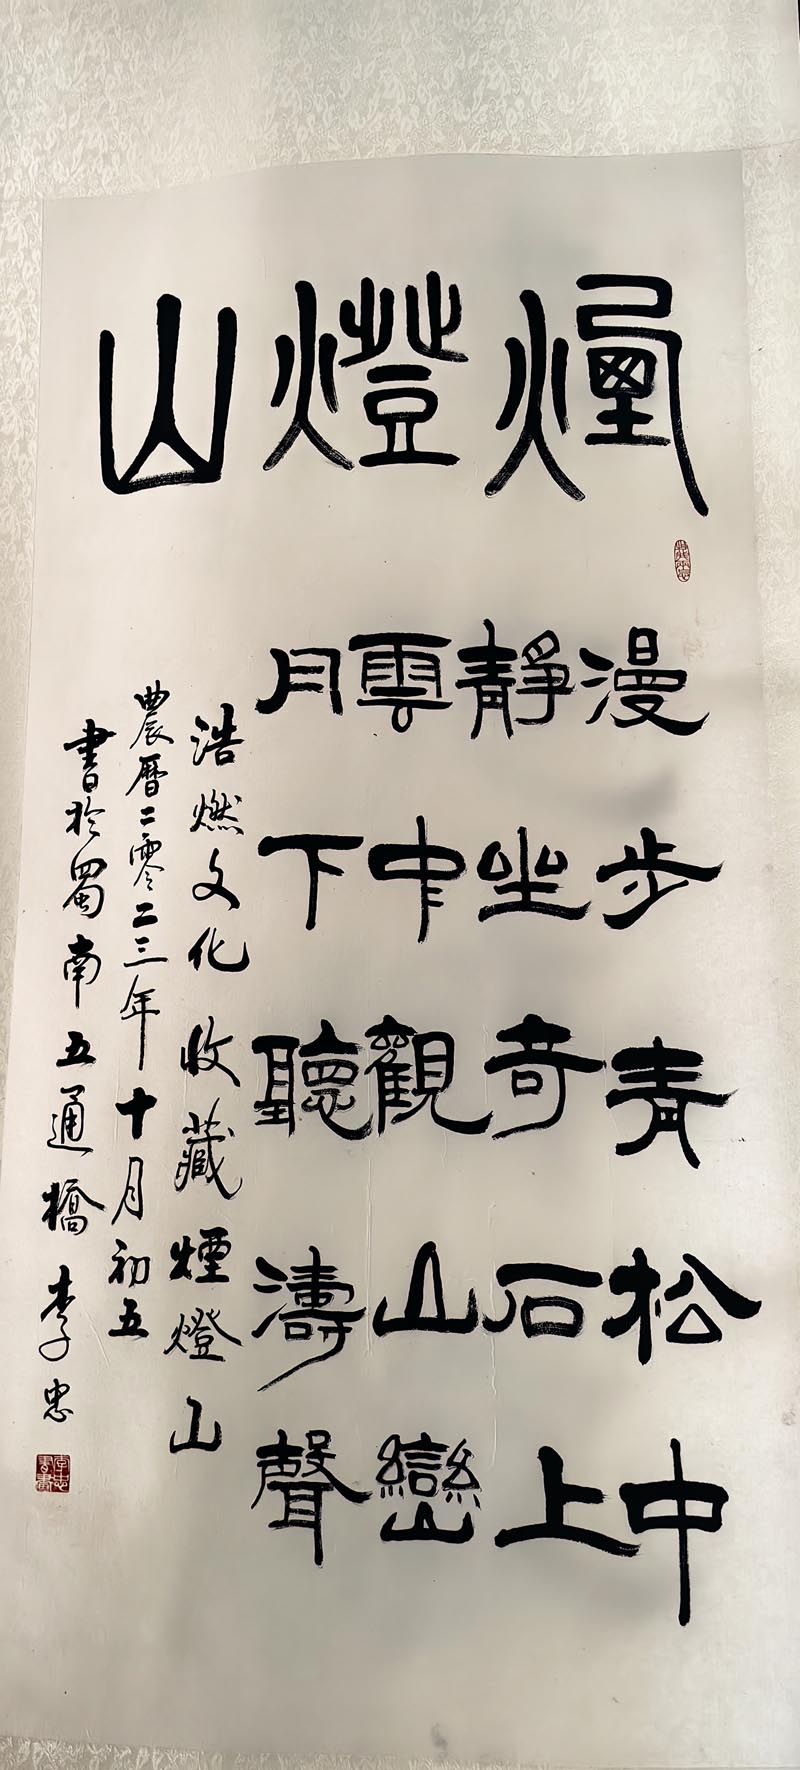 煙燈山
漫步青松中
靜坐奇石上
雲中觀山巒
月下聽濤聲
浩燃文化收藏煙燈山
農曆二零二三年十月初五
書於蜀南五通橋李忠